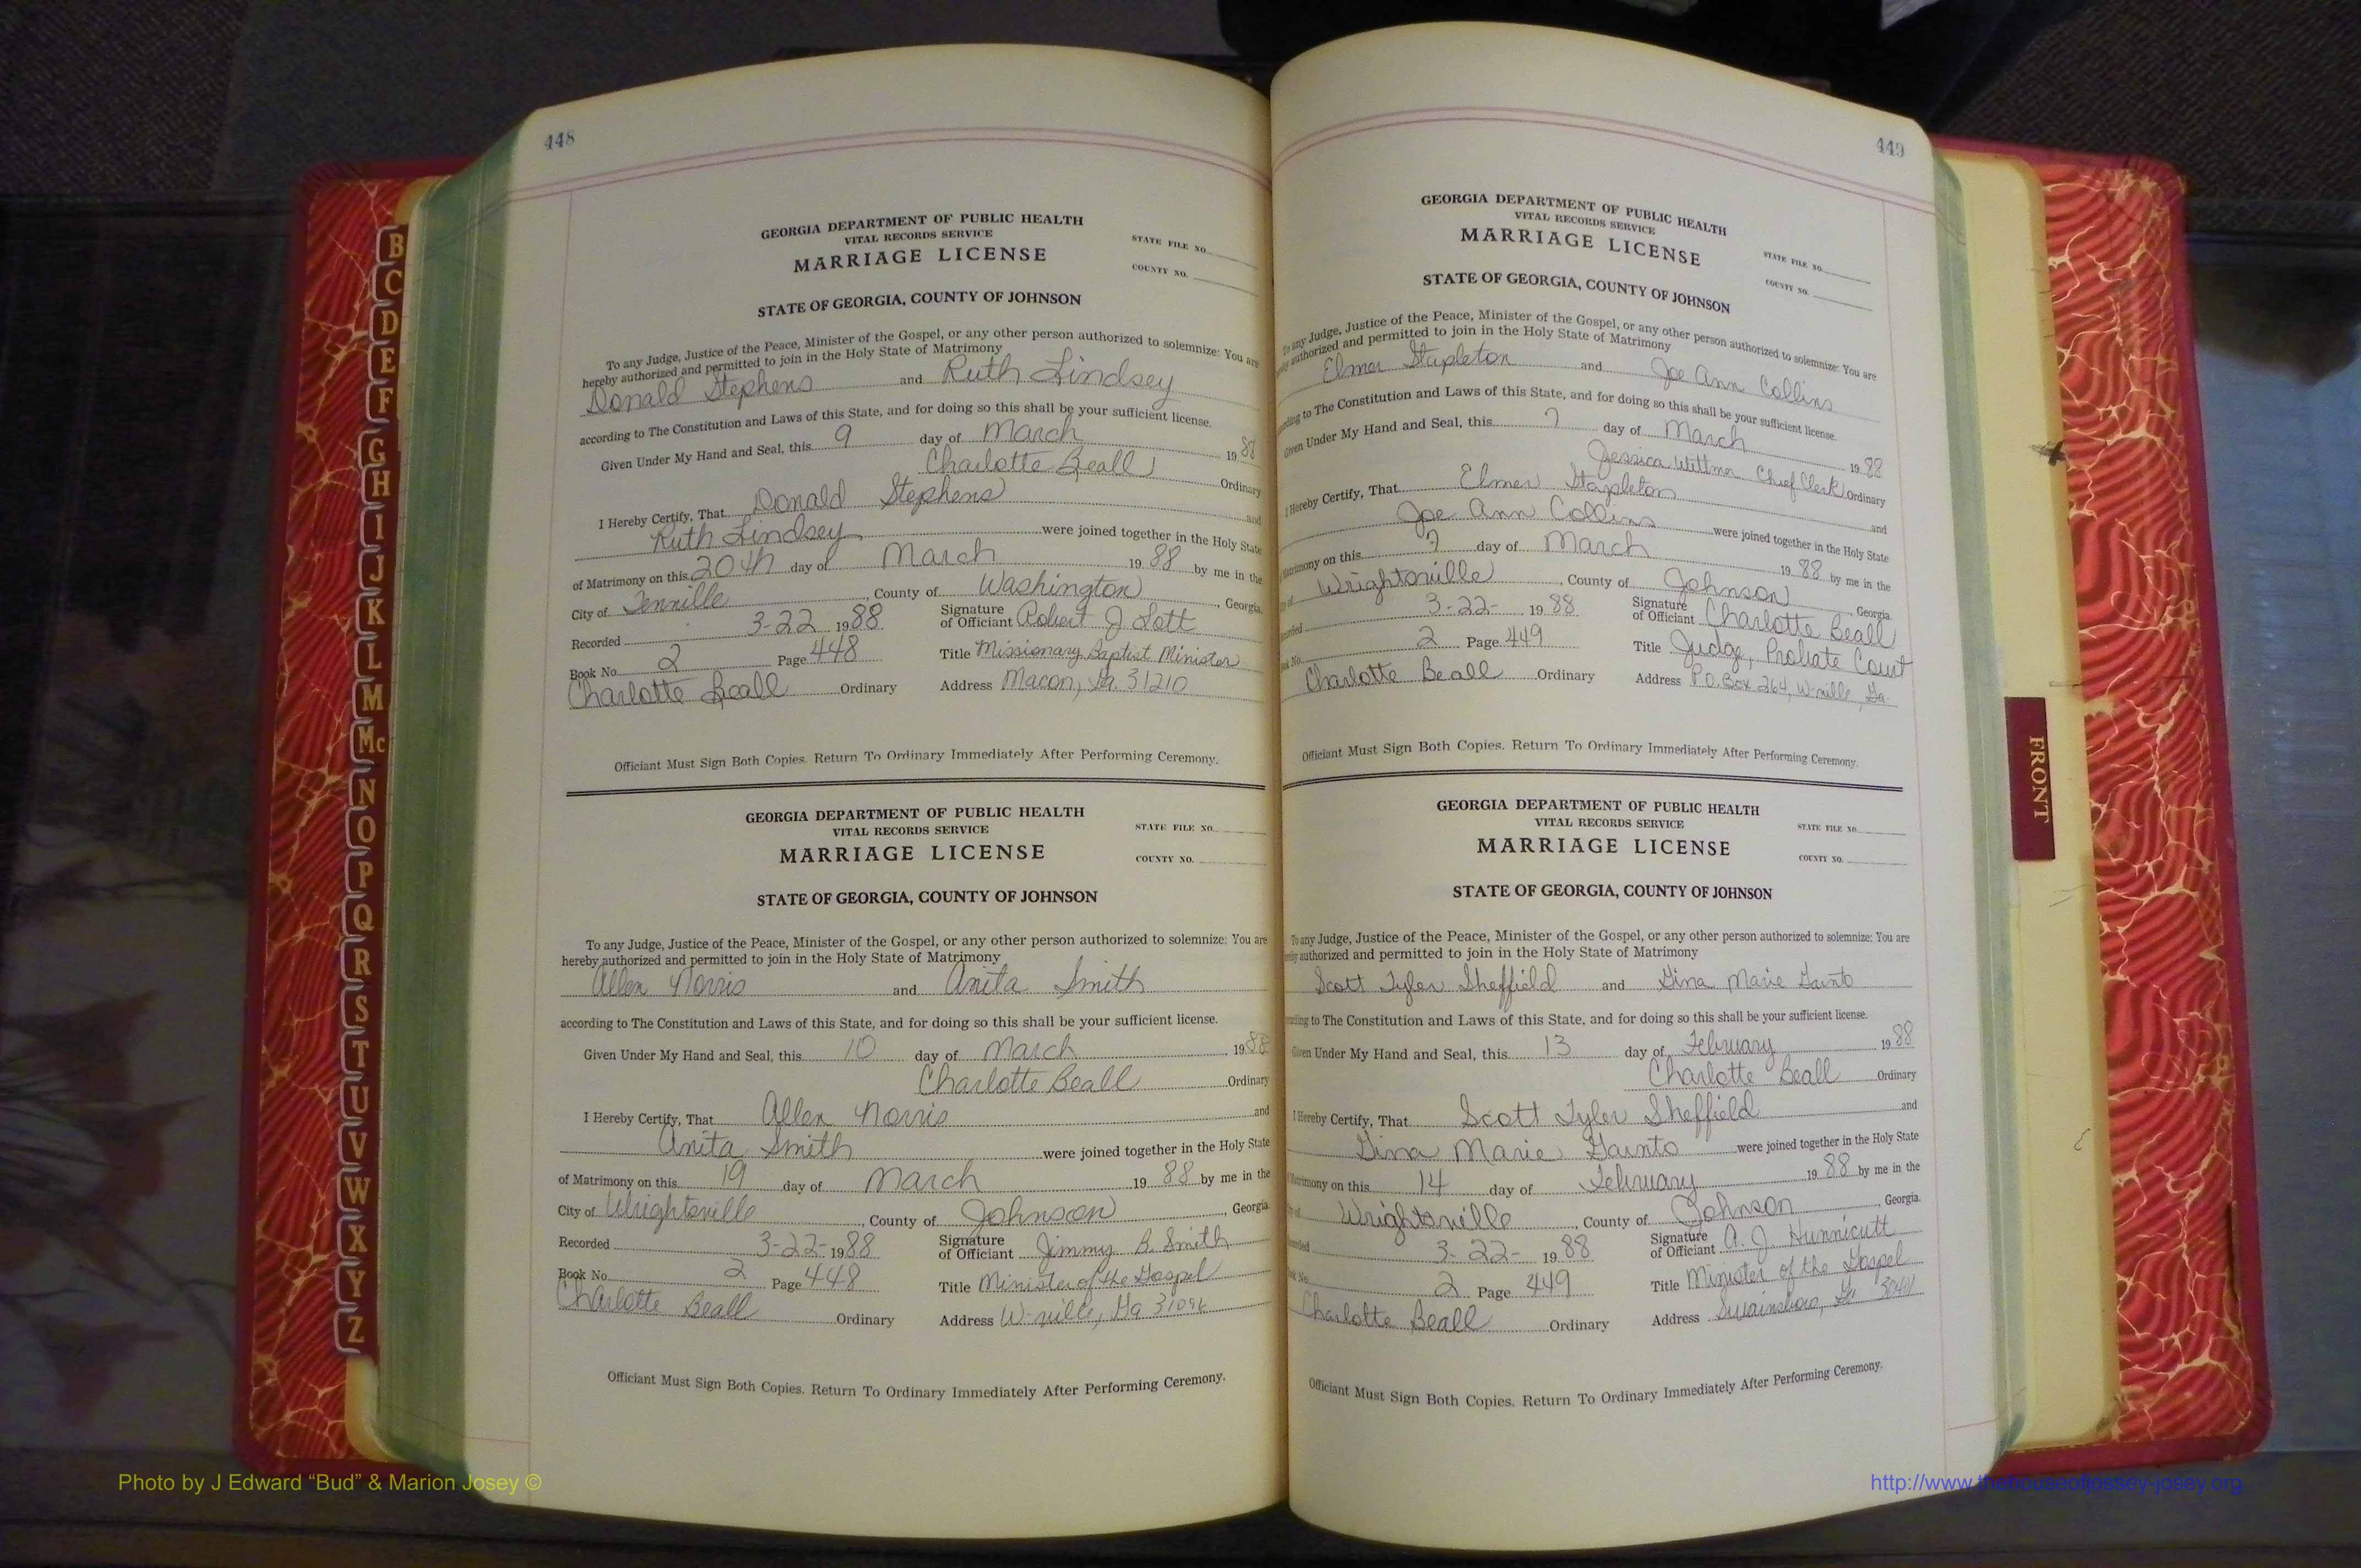 448
GEORGIA DEPARTMENT OF PUBLIC HEALTH
VITAL RECORDS SERVICE
MARRIAGE LICENSE
STATE FILE NO.
COUNTY NO.
STATE OF GEORGIA, COUNTY OF JOHNSON
To any Judge, Justice of the Peace, Minister of the Gospel, or any other person authorized to solemnize: You are
hereby authorized and permitted to join in the Holy State of Matrimony
Donald Stephens and Ruth Lindsey
according to The Constitution and Laws of this State, and for doing so this shall be your sufficient license.
Given Under My Hand and Seal, this 9 day of March 1988
Charlotte Beall Ordinary
I Hereby Certify, That Donald Stephens and
Ruth Lindsey were joined together in the Holy State
of Matrimony on this 20th day of March 19 88 by me in the
City of Tennille, County of Washington, Georgia.
Recorded 3-22 1988 Signature of Officiant Robert J Lott
Book No. 2 Page 448 Title Missionary Baptist Minister
Charlotte Beall Ordinary Address Macon, Ga. 31210
Officiant Must Sign Both Copies. Return To Ordinary Immediately After Performing Ceremony.
GEORGIA DEPARTMENT OF PUBLIC HEALTH
VITAL RECORDS SERVICE
MARRIAGE LICENSE
STATE FILE NO.
COUNTY NO.
STATE OF GEORGIA, COUNTY OF JOHNSON
To any Judge, Justice of the Peace, Minister of the Gospel, or any other person authorized to solemnize: You are
hereby authorized and permitted to join in the Holy State of Matrimony
Allen Norris and Anita Smith
according to The Constitution and Laws of this State, and for doing so this shall be your sufficient license.
Given Under My Hand and Seal, this 10 day of March 1988
Charlotte Beall Ordinary
I Hereby Certify, That Allen Norris and
Anita Smith were joined together in the Holy State
of Matrimony on this 19 day of March 19 88 by me in the
City of Wrightsville, County of Johnson, Georgia
Recorded 3-22- 1988 Signature of Officiant Jimmy B. Smith
Book No. 2 Page 448 Title Minister of the Gospel
Charlotte Beall Ordinary Address W-ville, Ga 31096
Officiant Must Sign Both Copies. Return To Ordinary Immediately After Performing Ceremony.
449
GEORGIA DEPARTMENT OF PUBLIC HEALTH
VITAL RECORDS SERVICE
MARRIAGE LICENSE
STATE FILE NO.
COUNTY NO.
STATE OF GEORGIA, COUNTY OF JOHNSON
To any Judge, Justice of the Peace, Minister of the Gospel, or any other person authorized to solemnize: You are
authorized and permitted to join in the Holy State of Matrimony
Elmer Stapleton and Joe Ann Collins
to The Constitution and Laws of this State, and for doing so this shall be your sufficient license.
Given Under My Hand and Seal, this 7 day of March 19 88
Jessica Wittmer Chief Clerk Ordinary
I Hereby Certify, That Elmer Stapleton and
Joe Ann Collins were joined together in the Holy State
Matrimony on this 7 day of March 19 88 by me in the
Wrightsville, County of Johnson, Georgia
3-22- 19 88 Signature of Officiant Charlotte Beall
2 Page 449 Title Judge, Probate Court
Charlotte Beall Ordinary Address P.O. Box 264, W-ville, Ga.
Officiant Must Sign Both Copies. Return To Ordinary Immediately After Performing Ceremony.
GEORGIA DEPARTMENT OF PUBLIC HEALTH
VITAL RECORDS SERVICE
MARRIAGE LICENSE
STATE FILE NO.
COUNTY NO.
STATE OF GEORGIA, COUNTY OF JOHNSON
To any Judge, Justice of the Peace, Minister of the Gospel, or any other person authorized to solemnize: You are
authorized and permitted to join in the Holy State of Matrimony
Scott Tyler Sheffield and Gina Marie Gainto
to The Constitution and Laws of this State, and for doing so this shall be your sufficient license.
Given Under My Hand and Seal, this 13 day of February 19 88
Charlotte Beall Ordinary
I Hereby Certify, That Scott Tyler Sheffield and
Gina Marie Gainto were joined together in the Holy State
Matrimony on this 14 day of February 19 88 by me in the
Wrightsville, County of Johnson, Georgia.
3-22- 19 88 Signature of Officiant A. J. Hunnicutt
2 Page 449 Title Minister of the Gospel
Charlotte Beall Ordinary Address Swainsboro, Ga 30401
Officiant Must Sign Both Copies. Return To Ordinary Immediately After Performing Ceremony.
B
C
D
E
F
G
H
I
J
K
L
M
Mc
N
O
P
Q
R
S
T
U
V
W
X
Y
Z
FRONT
Photo by J Edward “Bud” & Marion Josey ©
http://www.thehouseofjossey-josey.org